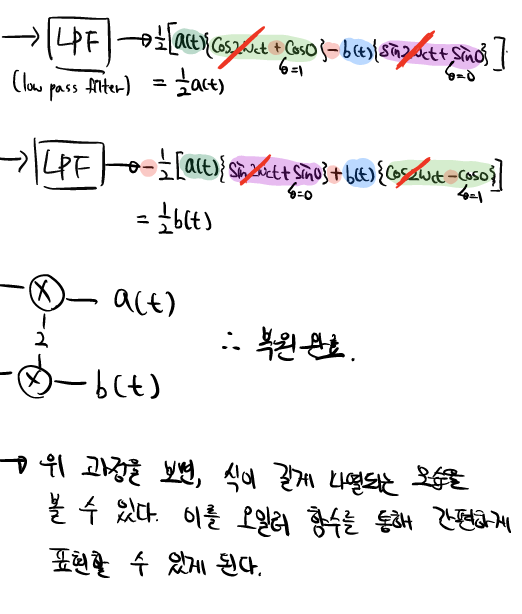 → LPF → 1/2[a(t){cos2ωct + cos0} - b(t){sin2ωct + sin0}]
↳=1 ↳=0
(low pass filter) = 1/2 a(t)
→ LPF → -1/2[a(t){sin2ωct + sin0} + b(t){cos2ωct - cos0}]
↳=0 ↳=1
= 1/2 b(t)
X — a(t)
2
∴ 복원 완료.
X — b(t)
→ 위 과정을 보면, 식이 길게 나열되는 모습을
볼 수 있다. 이를 오일러 함수를 통해 간편하게
표현할 수 있게 된다.